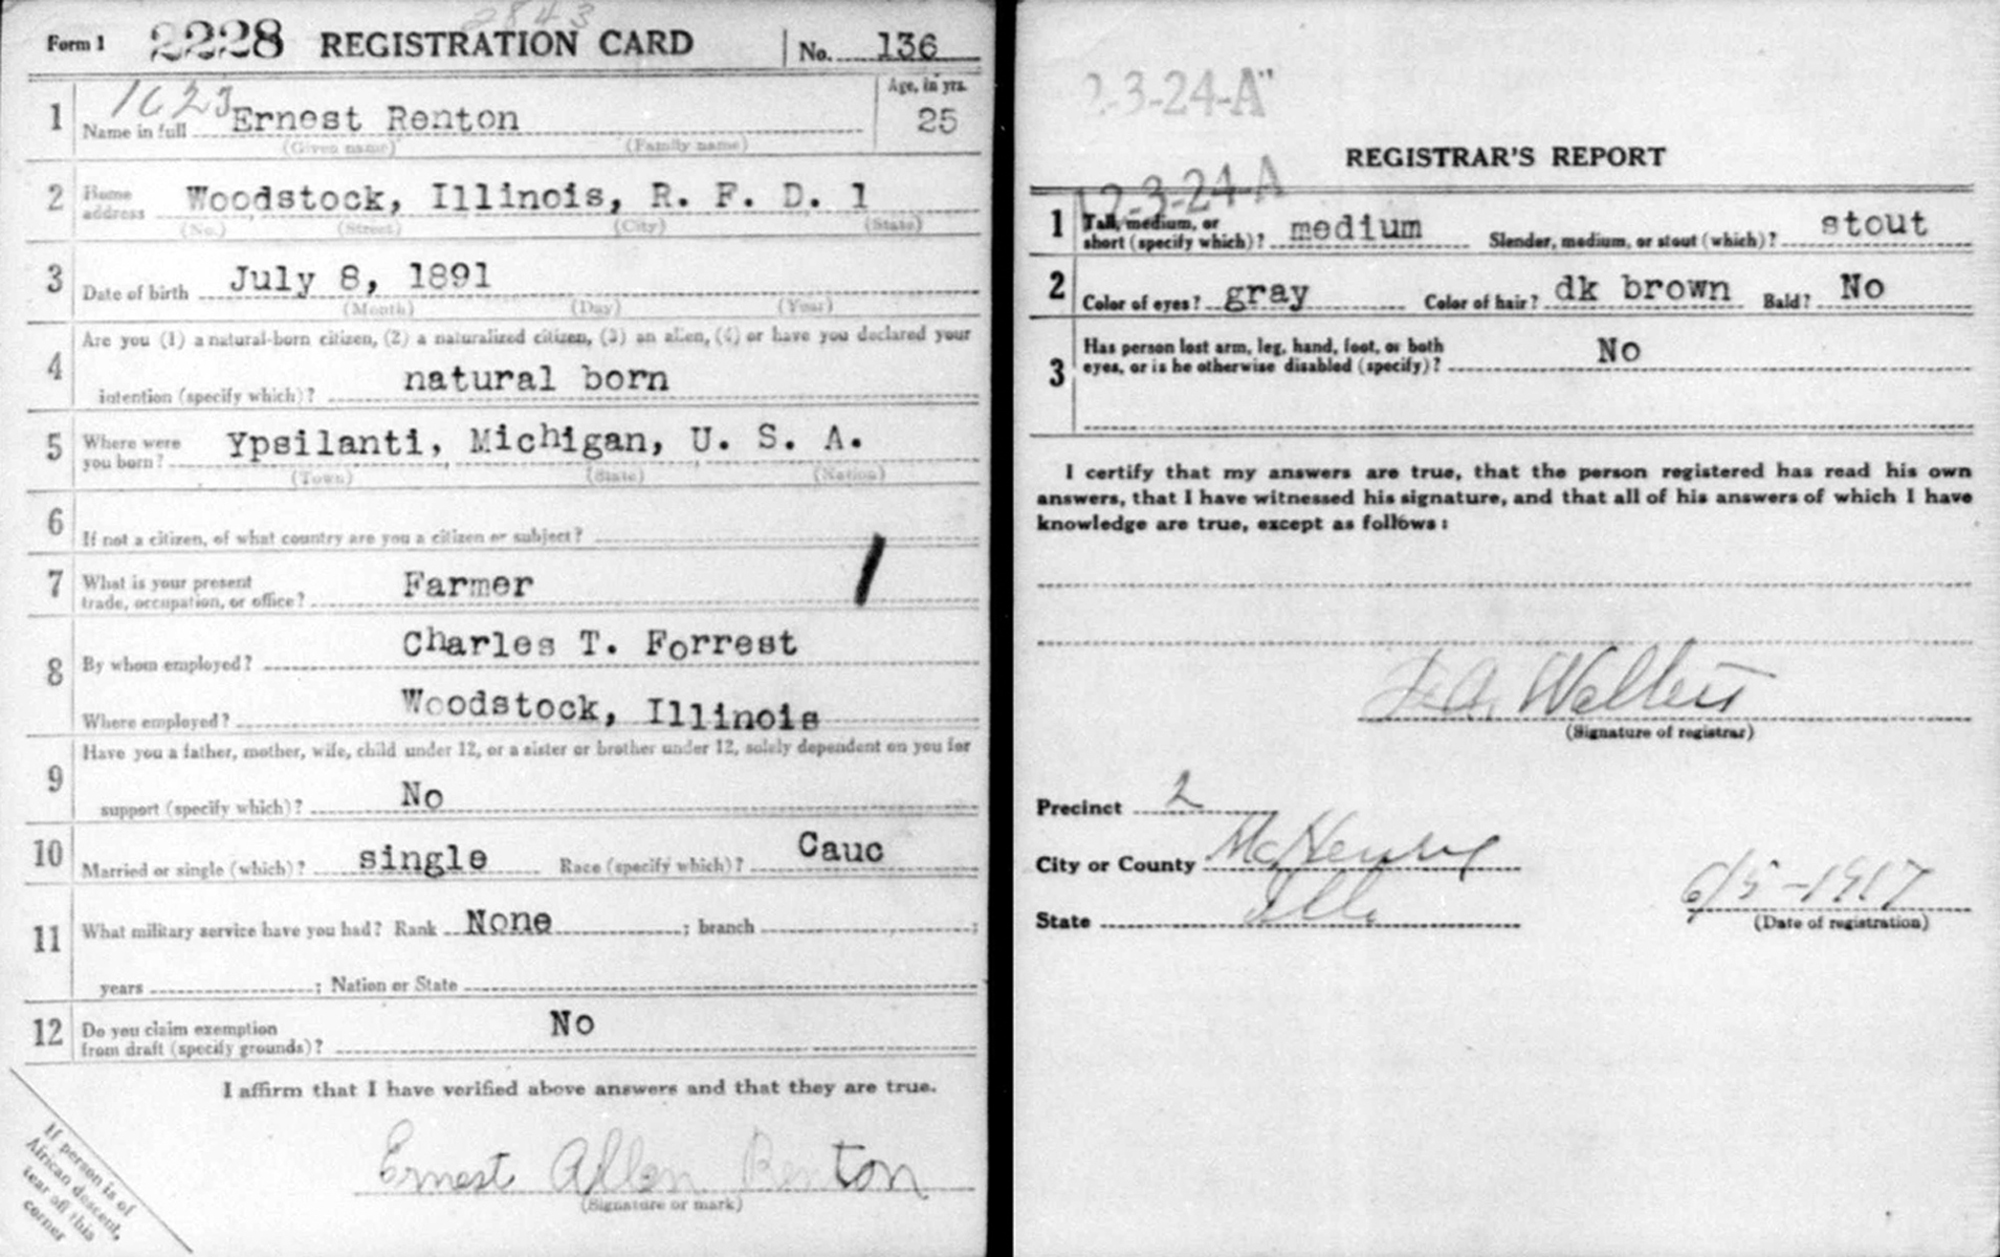 2843
Form 1 2228 REGISTRATION CARD No. 136
1623 Age, in yrs.
1 Name in full Ernest Renton 25
(Given name) (Family name)
2 Home address Woodstock, Illinois, R. F. D. 1
(No.) (Street) (City) (State)
3 Date of birth July 8, 1891
(Month) (Day) (Year)
4 Are you (1) a natural-born citizen, (2) a naturalized citizen, (3) an alien, (4) or have you declared your
intention (specify which)? natural born
5 Where were you born? Ypsilanti, Michigan, U. S. A.
(Town) (State) (Nation)
6 If not a citizen, of what country are you a citizen or subject?
7 What is your present
trade, occupation, or office? Farmer
8 By whom employed? Charles T. Forrest
Where employed? Woodstock, Illinois
9 Have you a father, mother, wife, child under 12, or a sister or brother under 12, solely dependent on you for
support (specify which)? No
10 Married or single (which)? single Race (specify which)? Cauc
11 What military service have you had? Rank None ; branch ;
years ; Nation or State
12 Do you claim exemption
from draft (specify grounds)? No
I affirm that I have verified above answers and that they are true.
Ernest Allen Renton
(Signature or mark)
If person is of
African descent,
tear off this
corner
-3-24-A"
REGISTRAR'S REPORT
12-3-24-A
1 Tall, medium, or
short (specify which)? medium Slender, medium, or stout (which)? stout
2 Color of eyes? gray Color of hair? dk brown Bald? No
3 Has person lost arm, leg, hand, foot, or both
eyes, or is he otherwise disabled (specify)? No
I certify that my answers are true, that the person registered has read his own
answers, that I have witnessed his signature, and that all of his answers of which I have
knowledge are true, except as follows:
(Signature of registrar)
Precinct 2
City or County McHenry
State Ills 6/5-1917
(Date of registration)